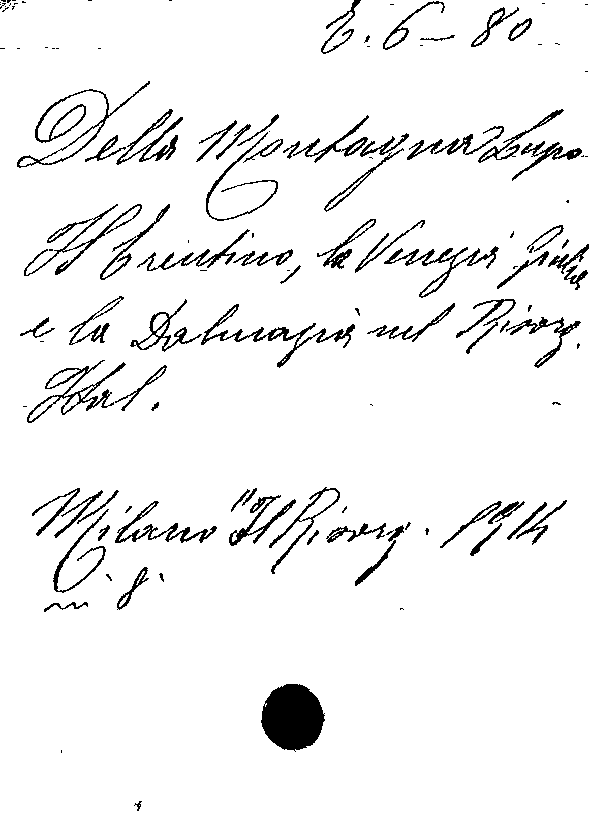 E. 6 - 80
Della Montagna Lupo
Il Trentino, la Venezia Giulia
e la Dalmazia nel Risorg.
Ital.
Milano "Il Risorg. 1914
in 8.